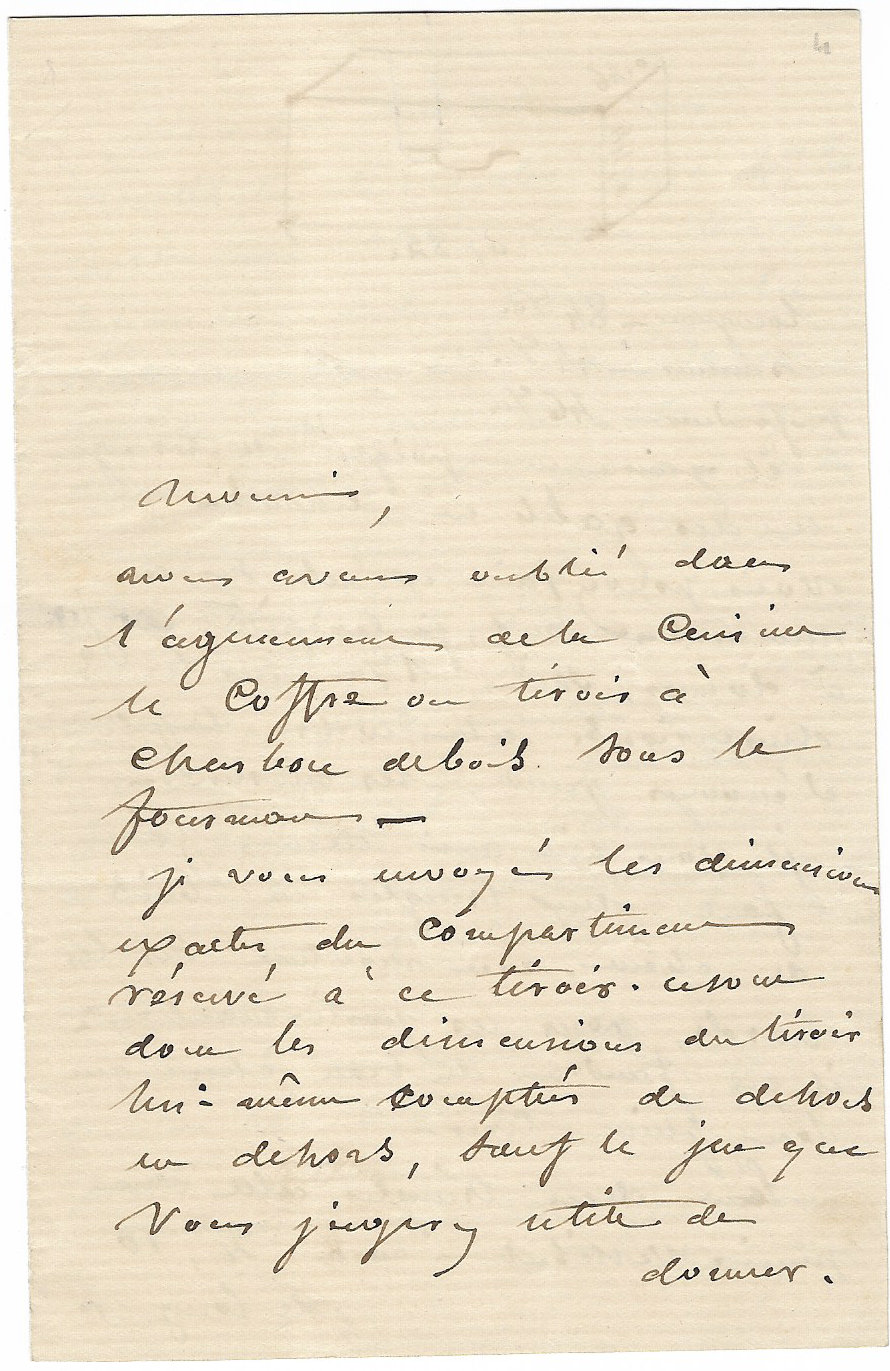 4
Monsieur,
nous avons oublié dans
l'agencement de la Cuisine
le Coffre ou tiroir à
charbon de bois sous le
fourneau —
je vous envoye les dimensions
exactes du Compartiment
réservé à ce tiroir. ce sont
donc les dimensions du tiroir
lui-même comptées de dehors
en dehors, sauf le jeu que
vous jugerez utile de
donner.